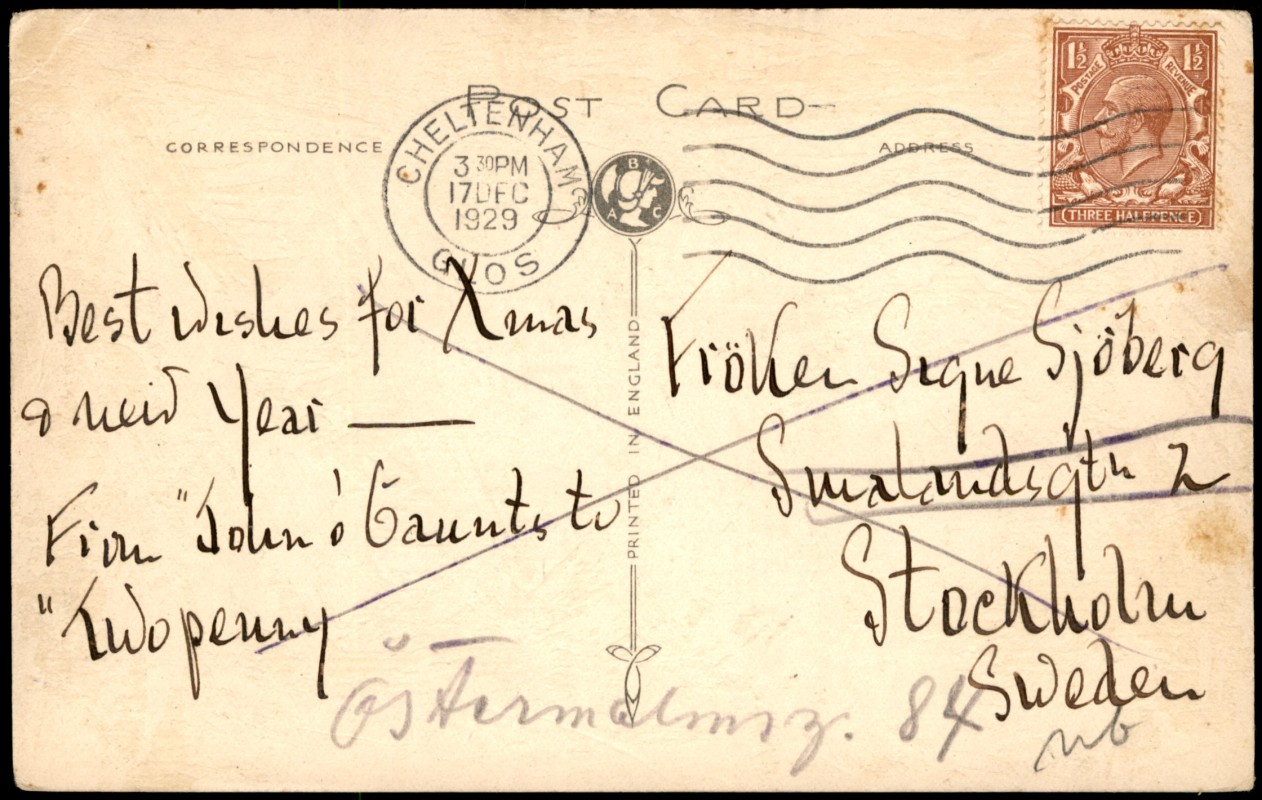 POST CARD
CORRESPONDENCE
ADDRESS
CHELTENHAM
3 30PM
17 DEC
1929
GLOS
B
A C
1½ 1½
POSTAGE REVENUE
THREE HALFPENCE
Best wishes for Xmas
& new Year —
From "John o' Gaunts to
"Twopenny
PRINTED IN ENGLAND
Fröken Signe Sjöberg
Smalandsgtn 2
Stockholm
Sweden
Östermalmsg. 84
nb